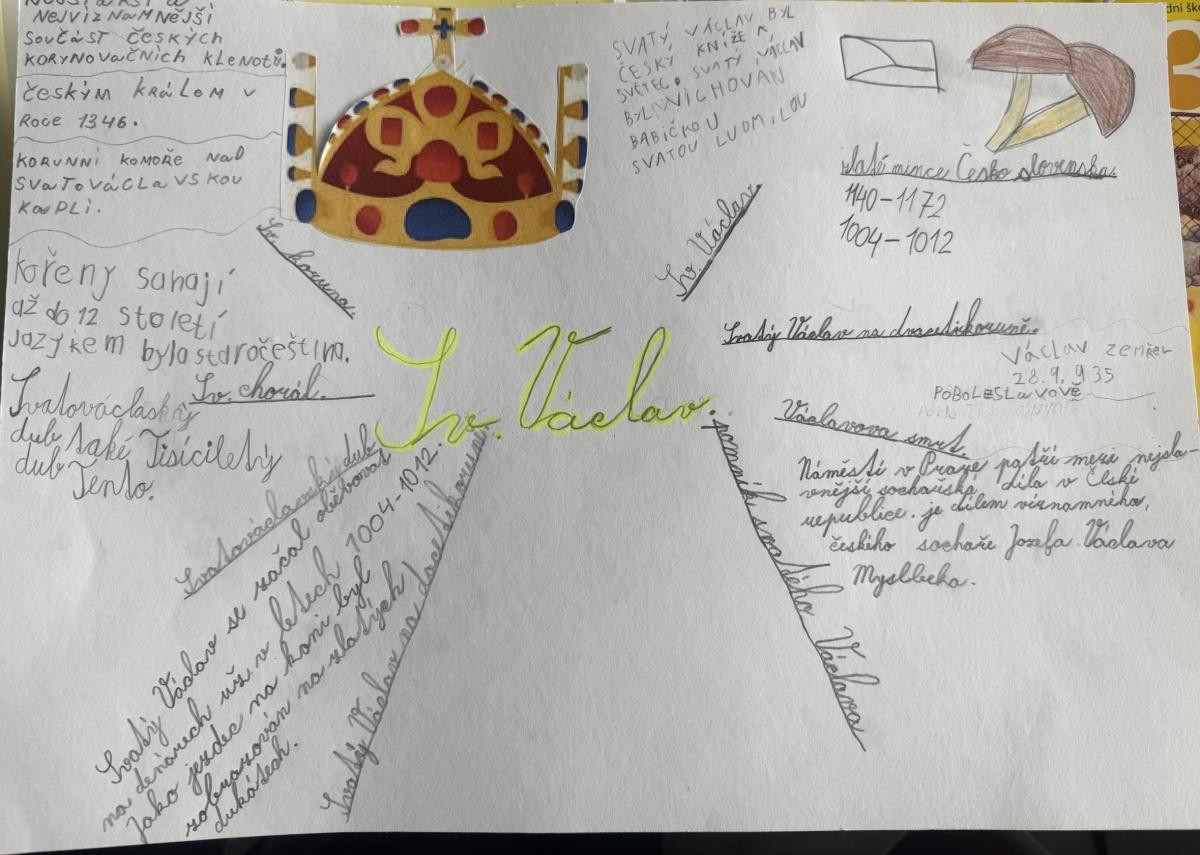 NEJVÝZNAMNĚJŠÍ
SOUČÁST ČESKÝCH
KORYNOVAČNÍCH KLENOTŮ.
ČESKÝM KRÁLEM V
ROCE 1346.
KORUNNÍ KOMOŘE NAD
SVATOVÁCLAVSKOU
KAPLI.
Sv. koruna
Kořeny sahají
až do 12 století
Jazykem byla staročeština.
Sv. chorál.
Svatováclaský
dub také Tisíciletý
dub Tento.
Svatováclavský dub
Svatý Václav se začal oběvovat
na denárech už v letech 1004-1012.
Jako jezdec na koni byl
zobrazován na zlatých
dukátech.
Svatý Václav na dvacetikoruně
Sv. Václav.
SVATÝ VÁCLAV BYL
ČESKÝ KNÍŽE A
SVĚTEC. SVATÝ VÁCLAV
BYL VICHOVAN
BABIČKOU
SVATOU LUDMILOU
Sv. Václav
zlaté mince Česko slovenska.
1140-1172
1004-1012
Svatý Václav na dvacetikoruně.
Václav zemřel
28.9.935
POBOLESLAVOVĚ
Václavova smrt.
Náměstí v Praze patří mezi nejsla-
vnější sochařská díla v České
republice. je dílem významného,
českého sochaře Jozefa Václava
Myslbeka.
pomník svatého Václava
dní ško